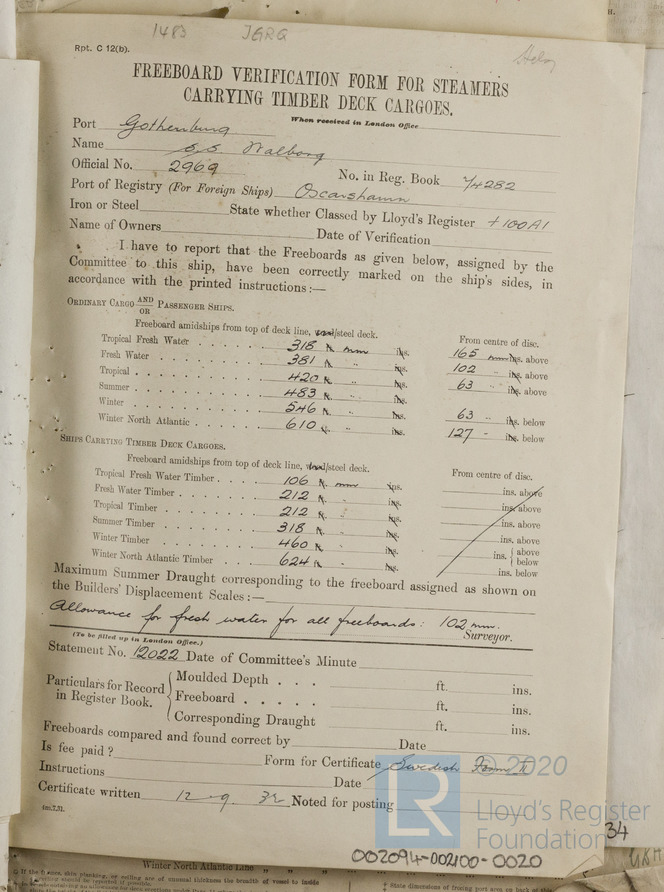 1483 JGRG
Rpt. C 12(b).
FREEBOARD VERIFICATION FORM FOR STEAMERS
CARRYING TIMBER DECK CARGOES.
When received in London Office
Port Gothenburg
Name S.S. Walborg
Official No. 2969 No. in Reg. Book 74282
Port of Registry (For Foreign Ships) Oscarshamn
Iron or Steel State whether Classed by Lloyd's Register +100A1
Name of Owners Date of Verification
I have to report that the Freeboards as given below, assigned by the
Committee to this ship, have been correctly marked on the ship's sides, in
accordance with the printed instructions:—
ORDINARY CARGO AND OR PASSENGER SHIPS.
Freeboard amidships from top of deck line, wood/steel deck. From centre of disc.
Tropical Fresh Water 318 ft. mm ins. 165 mm ins. above
Fresh Water 381 ft. " ins. 102 " ins. above
Tropical 420 ft. " ins. 63 " ins. above
Summer 483 ft. " ins.
Winter 546 ft. " ins. 63 " ins. below
Winter North Atlantic 610 ft. " ins. 127 " ins. below
SHIPS CARRYING TIMBER DECK CARGOES.
Freeboard amidships from top of deck line, wood/steel deck. From centre of disc.
Tropical Fresh Water Timber 106 ft. mm ins. ins. above
Fresh Water Timber 212 ft. " ins. ins. above
Tropical Timber 212 ft. " ins. ins. above
Summer Timber 318 ft. " ins. ins. above
Winter Timber 460 ft. " ins. ins. { above below
Winter North Atlantic Timber 624 ft. " ins. ins. below
Maximum Summer Draught corresponding to the freeboard assigned as shown on
the Builders' Displacement Scales:—
Allowance for fresh water for all freeboards: 102 mm.
Surveyor.
(To be filled up in London Office.)
Statement No. 12022 Date of Committee's Minute
Particulars for Record in Register Book.
Moulded Depth ft. ins.
Freeboard ft. ins.
Corresponding Draught ft. ins.
Freeboards compared and found correct by Date
Is fee paid? Form for Certificate Swedish Form II
Instructions Date
Certificate written 12-9-32 Noted for posting
© 2020
LR Lloyd's Register
Foundation
34
002094-002100-0020
Winter North Atlantic Line